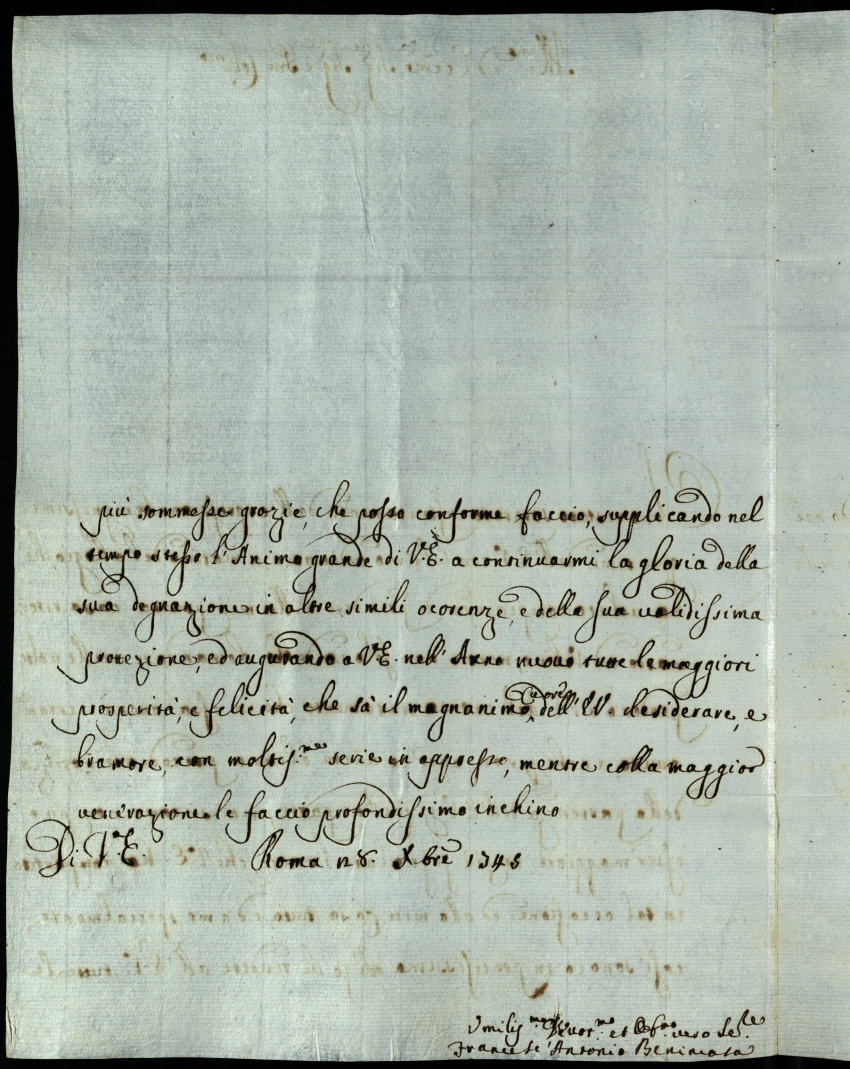 più sommesse grazie, che posso conforme faccio, supplicando nel
tempo stesso l'Animo grande di V.E. a continuarmi la gloria della
sua degnazione in altre simili ocorenze, e della sua validissima
protezione, ed augurando a V.E. nell'Anno nuovo tutte le maggiori
prosperità, e felicità, che sà il magnanimo Cuore dell' E.V. desiderare, e
bramare, con moltis.me serie in appresso, mentre colla maggior
venerazione le faccio profondissimo inchino
Di V.E. Roma Xbre 1745
Umilis.mo Devot.mo et Obb.mo vero Se.re
Francesc'Antonio